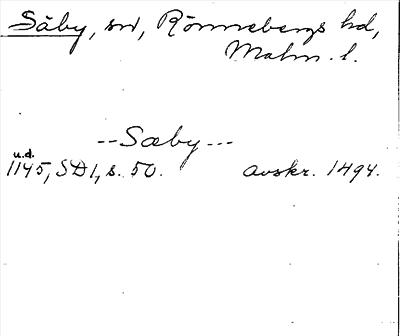 Säby, sn, Rönnebergs hd,
Malm. l.
--Sæby---
u.d.
1145, SD1, s. 50. avskr. 1494.